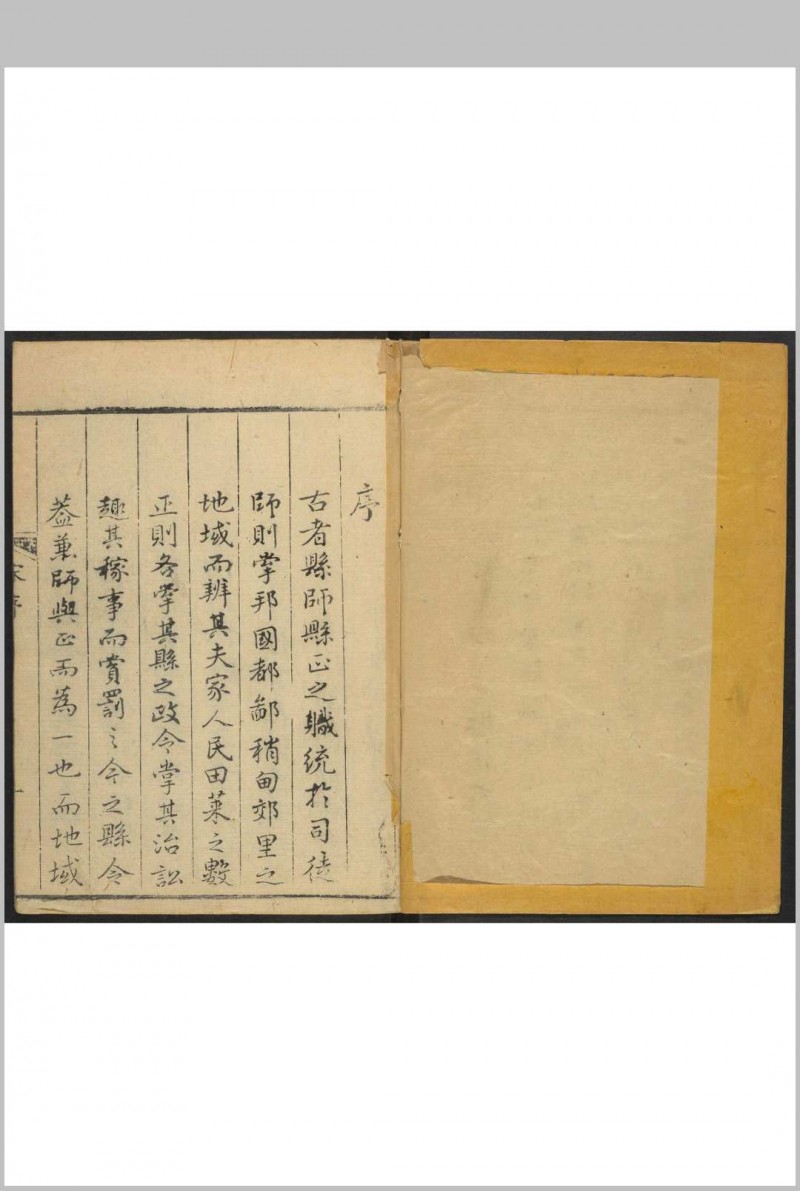 序
古者縣師縣正之職統於司徒
師則掌邦國都鄙稍甸郊里之
地域而辨其夫家人民田萊之數
正則各掌其縣之政令掌其治訟
趣其稼事而賞罰之今之縣令
葢兼師與正而為一也而地域
序